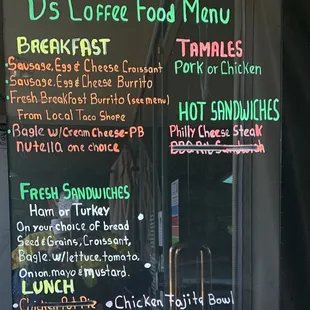 D's Coffee Food Menu
BREAKFAST
Sausage, Egg & Cheese Croissant
Sausage, Egg & Cheese Burrito
Fresh Breakfast Burrito (see menu)
From Local Taco Shope
Bagle w/Cream Cheese-PB
nutella one choice
TAMALES
Pork or Chicken
HOT SANDWICHES
Philly Cheese Steak
BBQ Rib Sandwich
FRESH SANDWICHES
Ham or Turkey
On your choice of bread
Seed & Grains, Croissant,
Bagle. w/lettuce, tomato,
Onion, mayo & mustard.
LUNCH
Chicken Pot Pie
Chicken Fajita Bowl